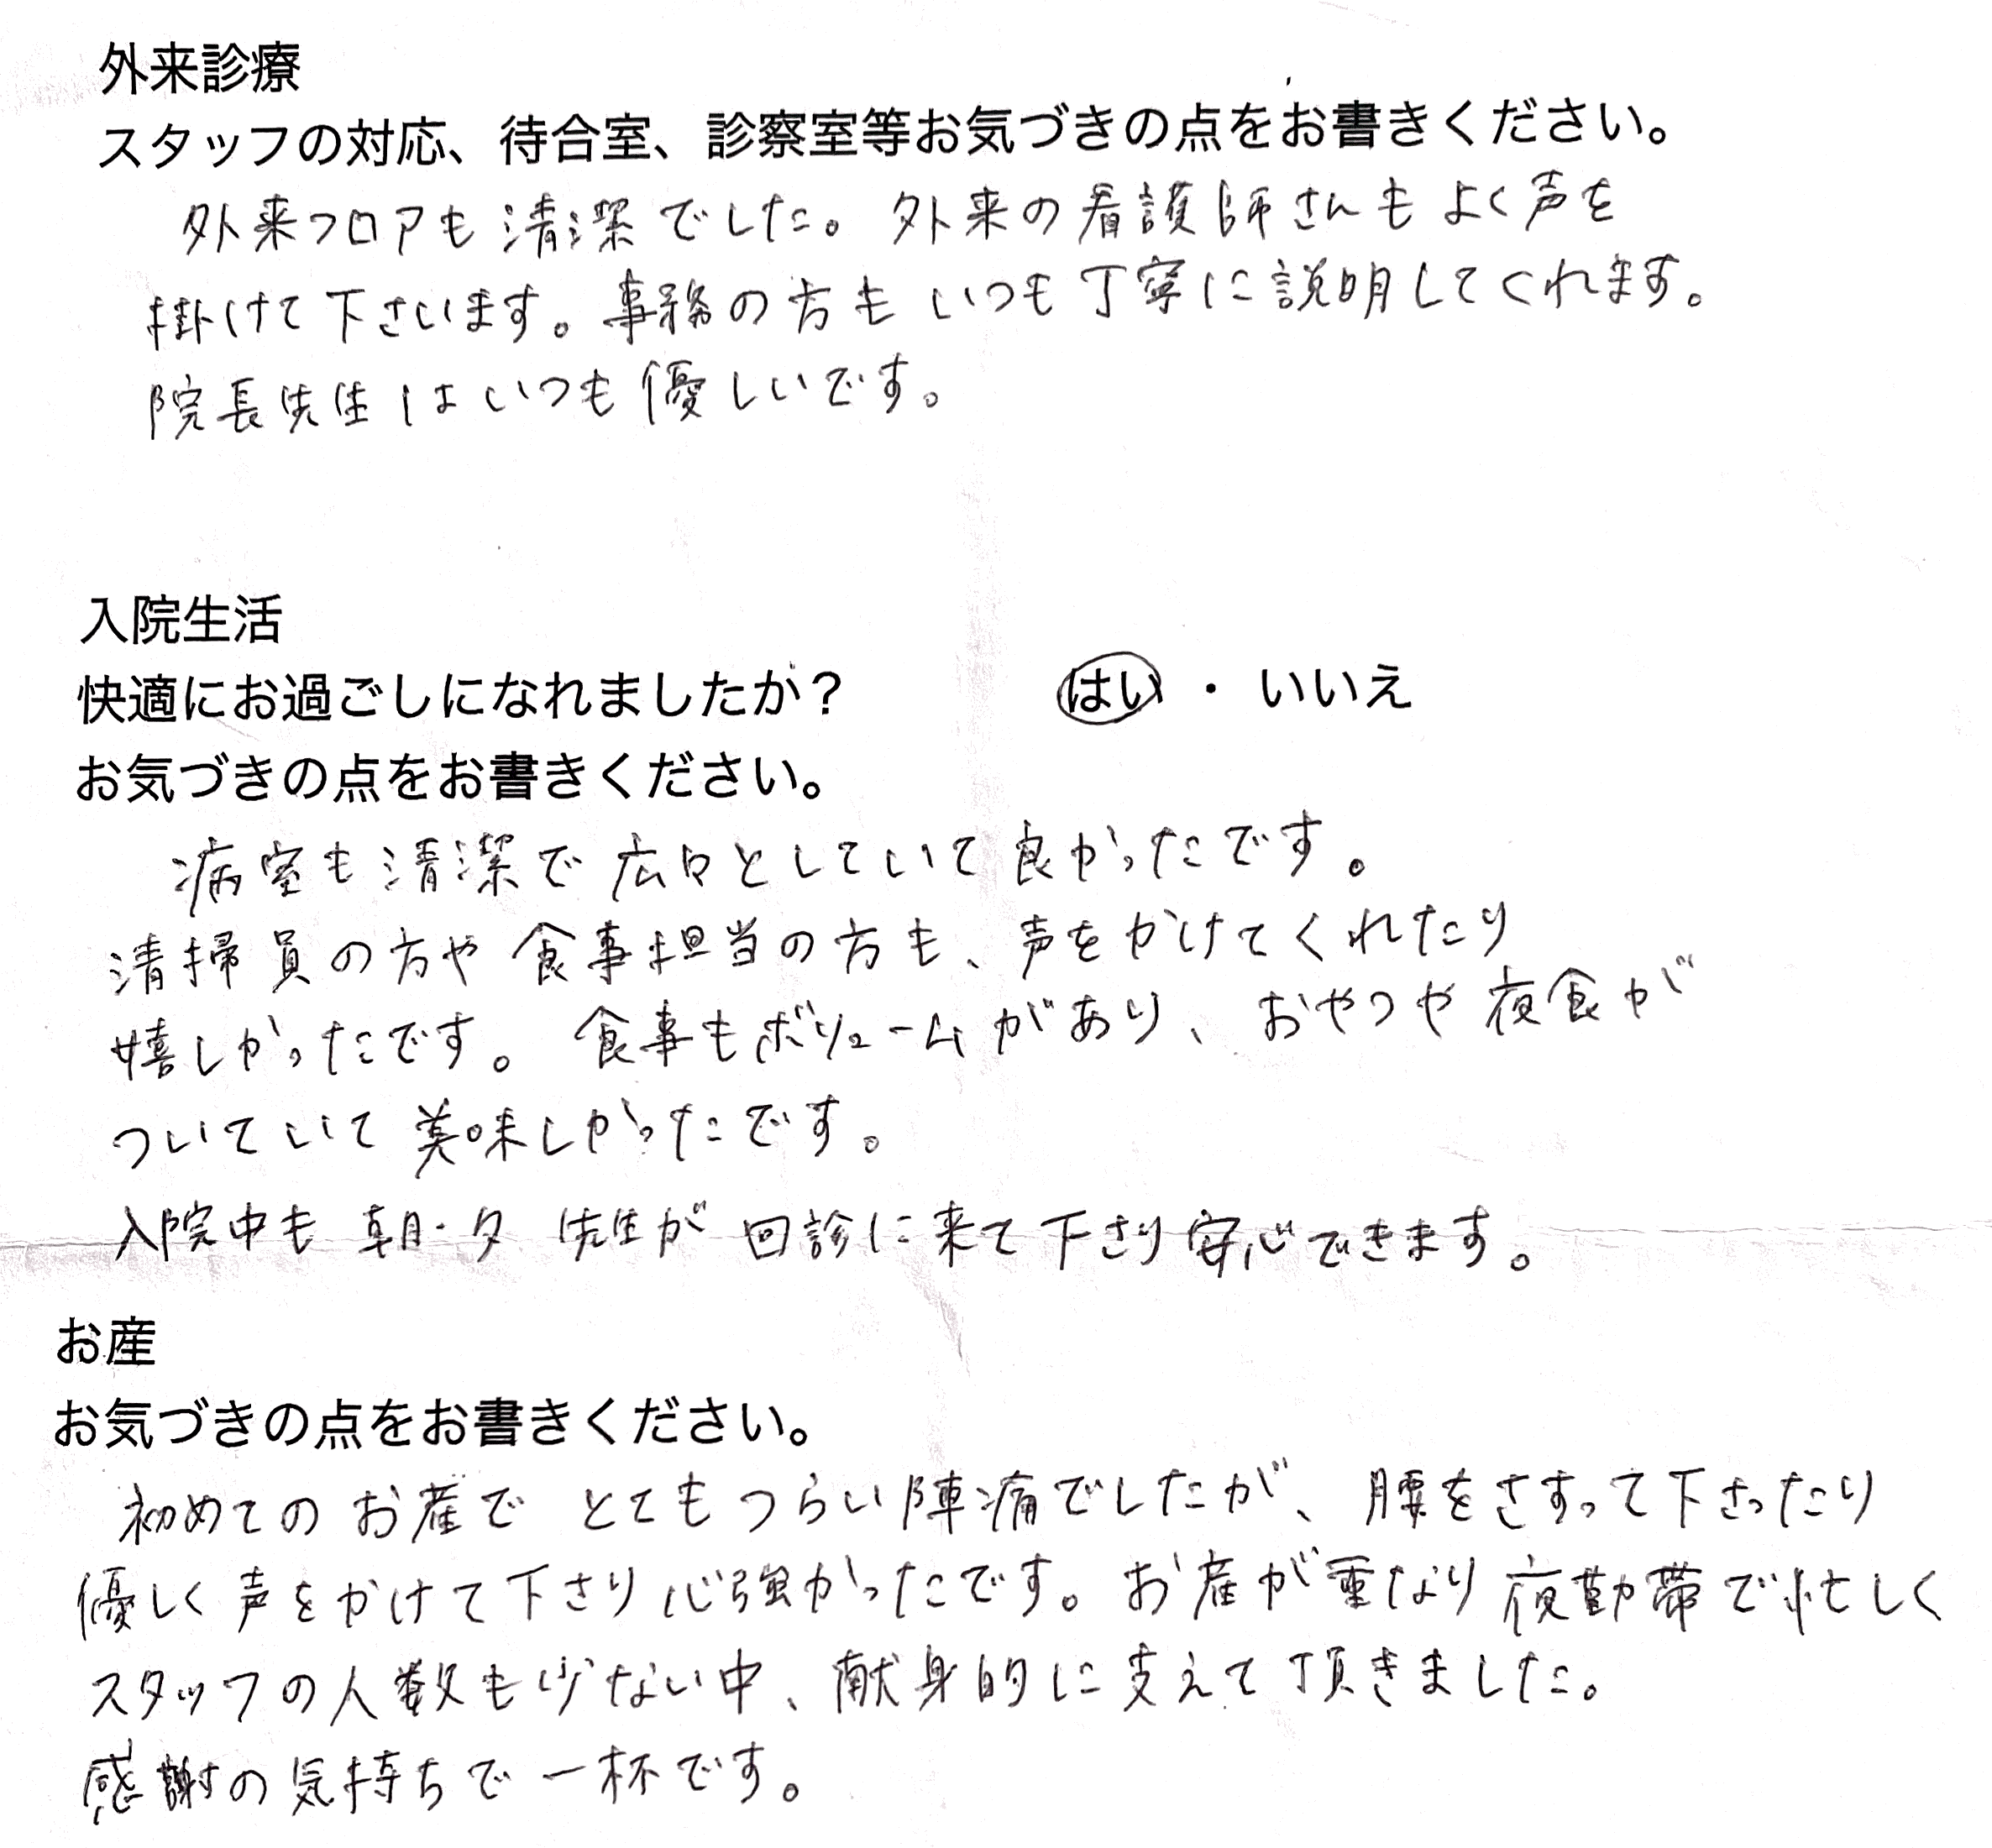 外来診療
スタッフの対応、待合室、診察室等お気づきの点をお書きください。
外来フロアも清潔でした。外来の看護師さんもよく声を
掛けて下さいます。事務の方もいつも丁寧に説明してくれます。
院長先生はいつも優しいです。
入院生活
快適にお過ごしになれましたか？ はい ・ いいえ
お気づきの点をお書きください。
病室も清潔で広々としていて良かったです。
清掃員の方や食事担当の方も、声をかけてくれたり
嬉しかったです。食事もボリュームがあり、おやつや夜食が
ついていて美味しかったです。
入院中も朝・夕 先生が回診に来て下さり安心できます。
お産
お気づきの点をお書きください。
初めてのお産でとてもつらい陣痛でしたが、腰をさすって下さったり
優しく声をかけて下さり心強かったです。お産が重なり夜勤帯で忙しく
スタッフの人数も少ない中、献身的に支えて頂きました。
感謝の気持ちで一杯です。